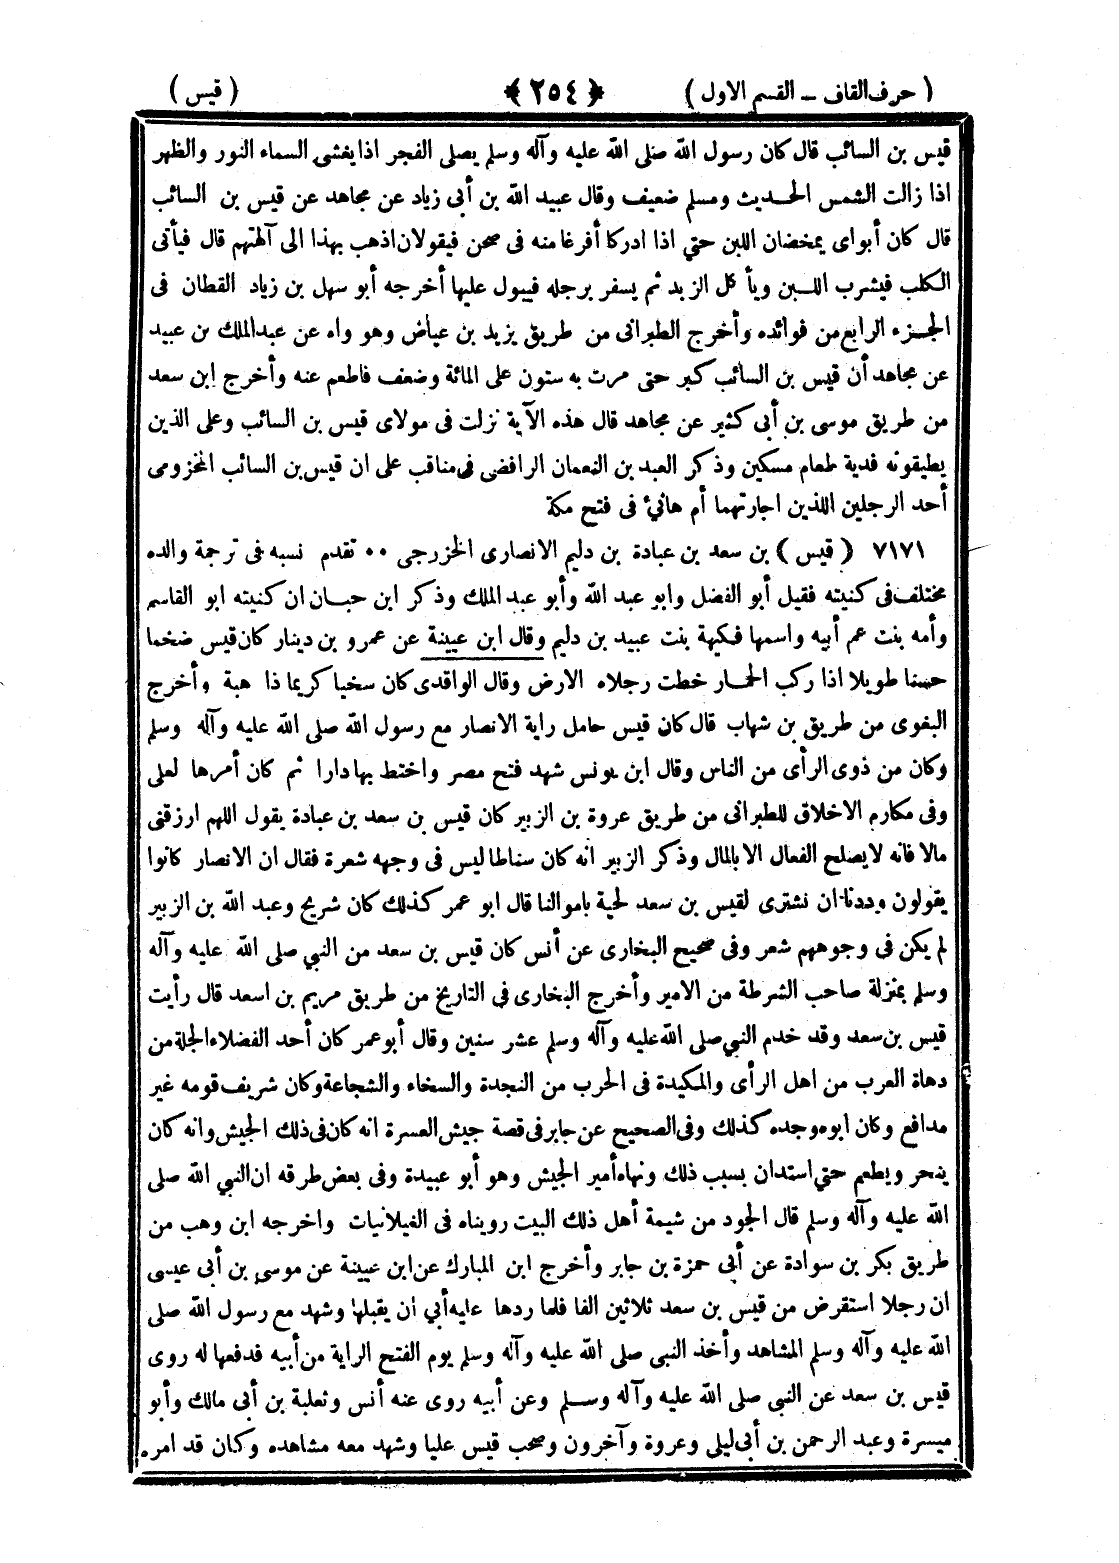 ( حرف القاف – القسم الاول ) ﴿ ٢٥٤ ﴾ ( قيس )
قيس بن السائب قال كان رسول الله صلى الله عليه وآله وسلم يصلى الفجر اذا يغشى السماء النور والظهر
اذا زالت الشمس الحديث ومسلم ضعيف وقال عبيد الله بن أبى زياد عن مجاهد عن قيس بن السائب
قال كان أبواى يمخضان اللبن حتي اذا ادركا أفرغا منه فى صحن فيقولان اذهب بهذا الى آلهتهم قال فيأتى
الكلب فيشرب اللبن ويأ كل الزبد ثم يسفر برجله فيبول عليها أخرجه أبو سهل بن زياد القطان فى
الجزء الرابع من فوائده وأخرج الطبرانى من طريق يزيد بن عياض وهو واه عن عبدالملك بن عبيد
عن مجاهد أن قيس بن السائب كبر حتى مرت به ستون على المائة وضعف فاطعم عنه وأخرج ابن سعد
من طريق موسى بن أبى كثير عن مجاهد قال هذه الآية نزلت فى مولاى قيس بن السائب وعلى الذين
يطيقونه فدية طعام مسكين وذكر العبد بن النعمان الرافضى فى مناقب على ان قيس بن السائب المخزومى
أحد الرجلين اللذين اجارتهما أم هانئ فى فتح مكة
٧١٧١ ( قيس ) بن سعد بن عبادة بن دليم الانصارى الخزرجى ٠٠ تقدم نسبه فى ترجمة والده
مختلف فى كنيته فقيل أبو الفضل وابو عبد الله وأبو عبد الملك وذكر ابن حبان ان كنيته ابو القاسم
وأمه بنت عم أبيه واسمها فكيهة بنت عبيد بن دليم وقال ابن عيينة عن عمرو بن دينار كان قيس ضخما
حسنا طويلا اذا ركب الحمار خطت رجلاه الارض وقال الواقدى كان سخيا كريما ذا هبة وأخرج
البغوى من طريق بن شهاب قال كان قيس حامل راية الانصار مع رسول الله صلى الله عليه وآله وسلم
وكان من ذوى الرأى من الناس وقال ابن يونس شهد فتح مصر واختط بها دارا ثم كان أمرها لعلى
وفى مكارم الاخلاق للطبرانى من طريق عروة بن الزبير كان قيس بن سعد بن عبادة يقول اللهم ارزقنى
مالا فانه لا يصلح الفعال الا بالمال وذكر الزبير انه كان سناطا ليس فى وجهه شعرة فقال ان الانصار كانوا
يقولون وددنا ان نشترى لقيس بن سعد لحية باموالنا قال ابو عمر كذلك كان شريح وعبد الله بن الزبير
لم يكن فى وجوههم شعر وفى صحيح البخارى عن أنس كان قيس بن سعد من النبي صلى الله عليه وآله
وسلم بمنزلة صاحب الشرطة من الامير وأخرج البخارى فى التاريخ من طريق مريم بن اسعد قال رأيت
قيس بن سعد وقد خدم النبي صلى الله عليه وآله وسلم عشر سنين وقال أبو عمر كان أحد الفضلاء الجلة من
دهاة العرب من اهل الرأى والمكيدة فى الحرب من النجدة والسخاء والشجاعة وكان شريف قومه غير
مدافع وكان ابوه وجده كذلك وفى الصحيح عن جابر فى قصة جيش العسرة انه كان فى ذلك الجيش وانه كان
ينحر ويطعم حتي استدان بسبب ذلك ونهاه أمير الجيش وهو أبو عبيدة وفى بعض طرقه ان النبي الله صلى
الله عليه وآله وسلم قال الجود من شيمة أهل ذلك البيت رويناه فى الغيلانيات واخرجه ابن وهب من
طريق بكر بن سوادة عن أبى حمزة بن جابر وأخرج ابن المبارك عن ابن عيينة عن موسى بن أبى عيسى
ان رجلا استقرض من قيس بن سعد ثلاثين الفا فلما ردها عليه أبي أن يقبلها وشهد مع رسول الله صلى
الله عليه وآله وسلم المشاهد وأخذ النبى صلى الله عليه وآله وسلم يوم الفتح الراية من أبيه فدفعها له روى
قيس بن سعد عن النبى صلى الله عليه وآله وسلم وعن أبيه روى عنه أنس وثعلبة بن أبى مالك وأبو
ميسرة وعبد الرحمن بن أبى ليلى وعروة وآخرون وصحب قيس عليا وشهد معه مشاهده وكان قد امره